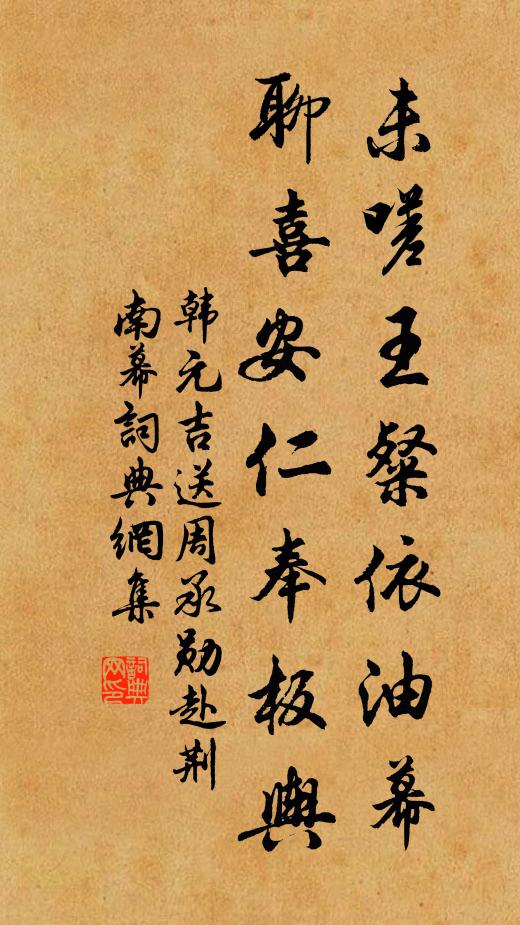 未嗟王粲依油幕
聊喜安仁奉板輿
韩元吉送周承勋赴荆
南幕詞典網集
詞典网印